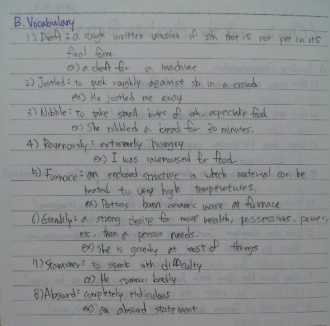 B. Vocabulary
1) Draft : a rough written version of sth that is not yet in its
final form.
ex) a draft for a machine
2) Jostled : to push roughly against sb in a crowd
ex) He jostled me away
3) Nibble : to take small bites of sth, especially food
ex) She nibbled a bread for 30 minutes.
4) Ravenously : extremely hungry
ex) I was ravenoused for food.
5) Furnace : an enclosed structure in which material can be
heated to very high temperatures.
ex) Potters burn ceramic ware at furnace
6) Greedily : a strong desire for more wealth, possessions, power,
etc. than a person needs.
ex) She is greedy at most of things
7) Stammer : to speak with difficulty
ex) He stammer badly
8) Absurd : completely ridiculous
ex) an absurd statement